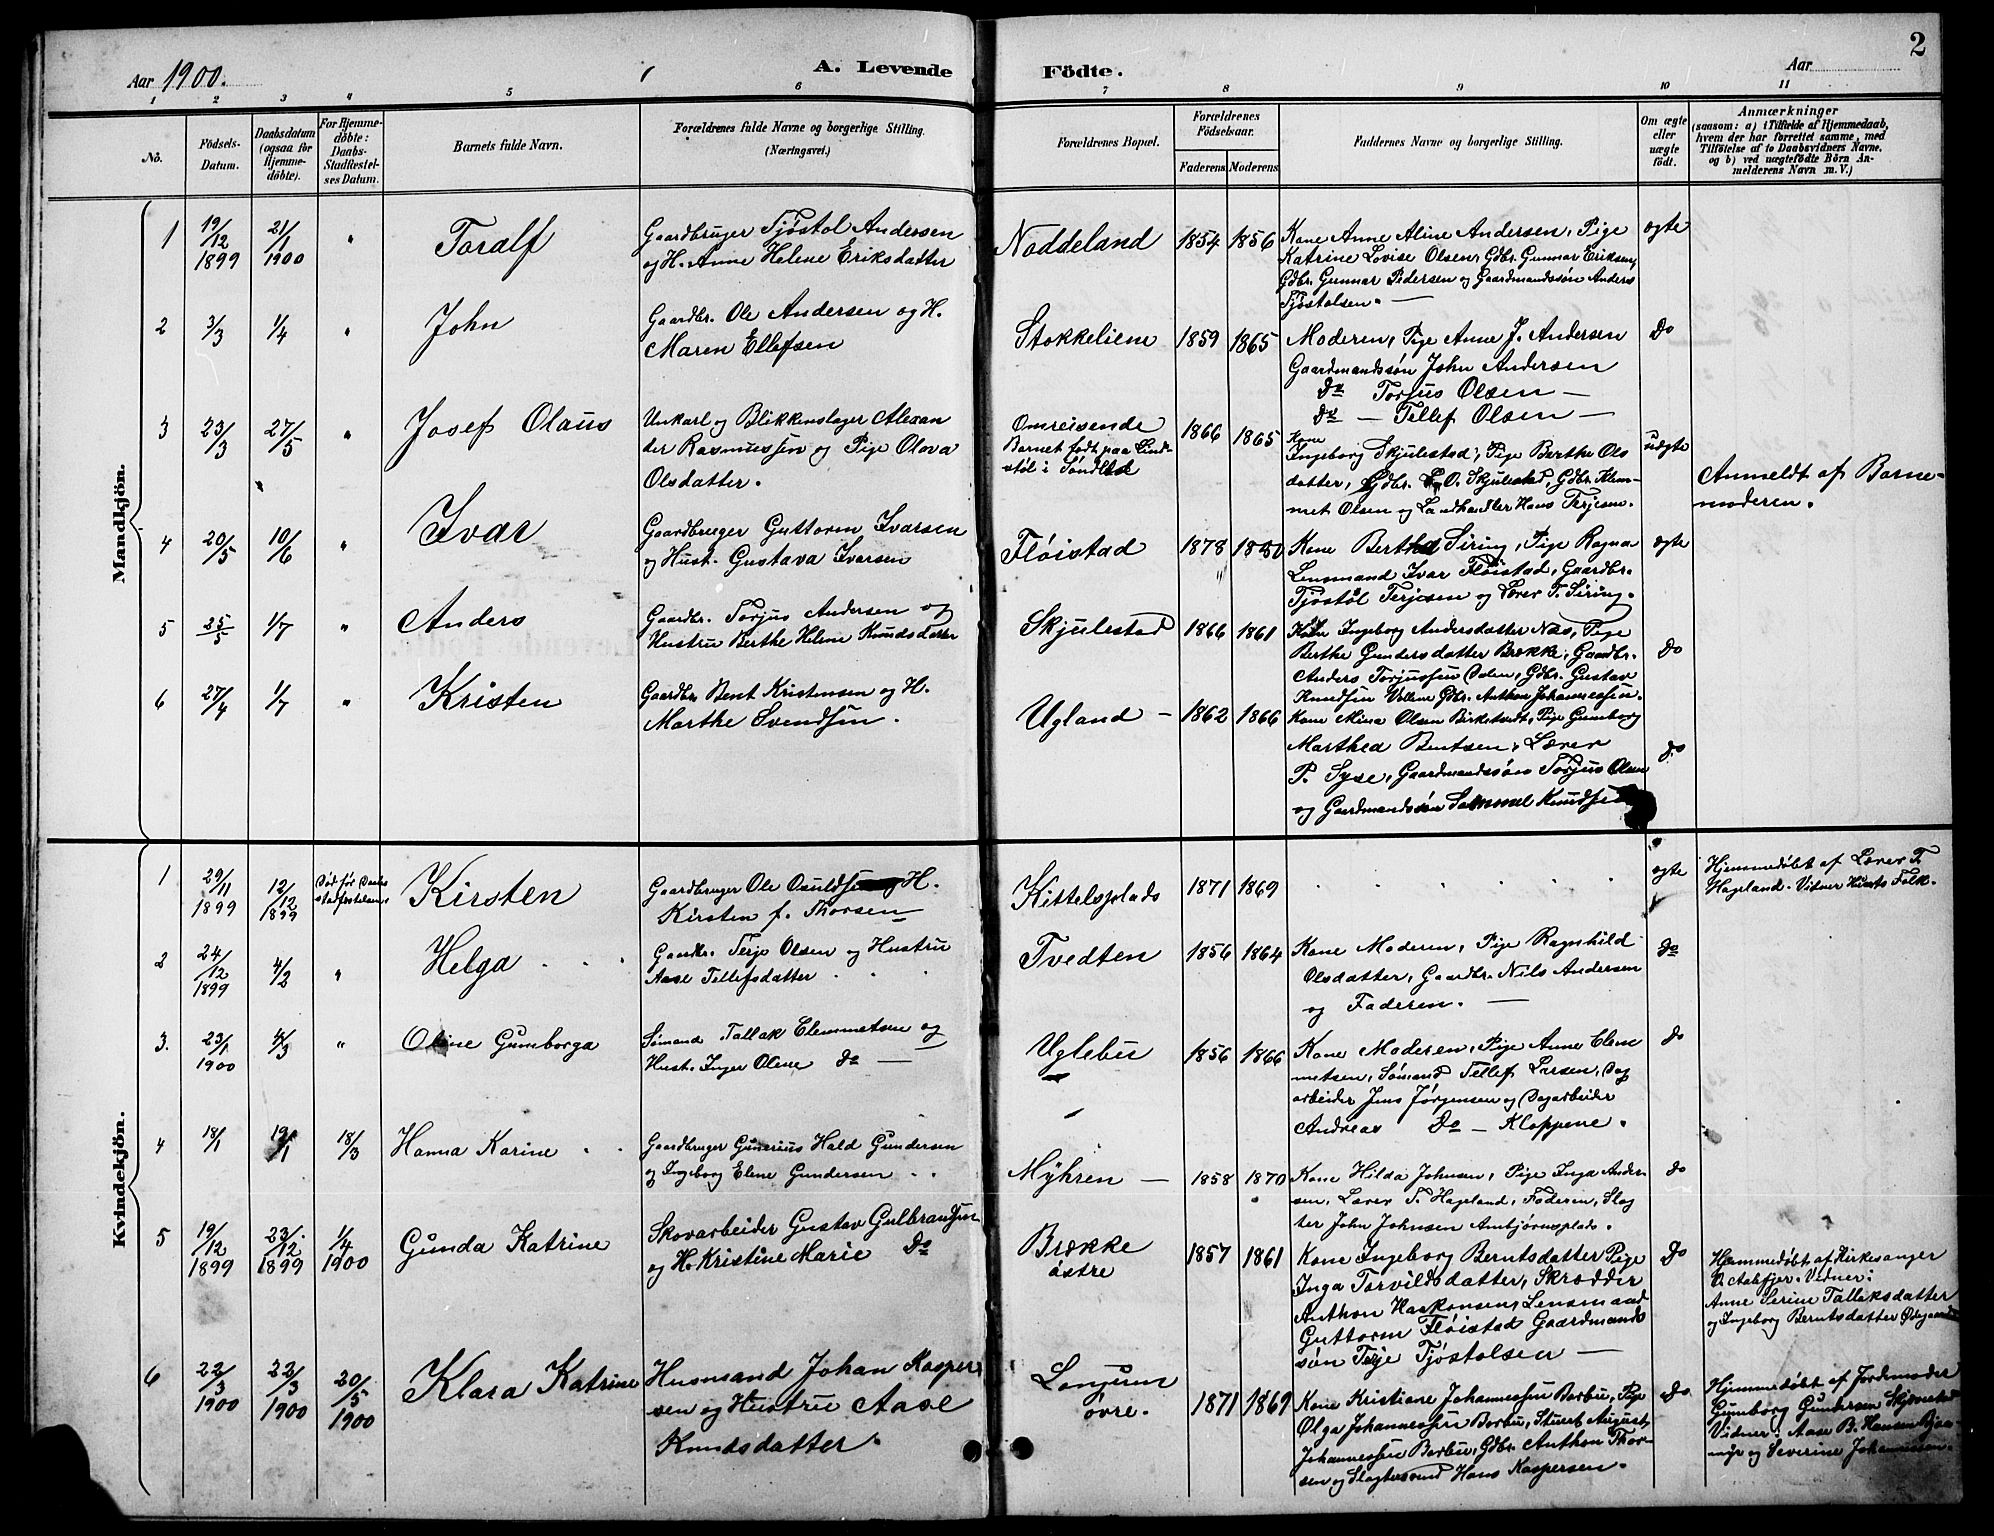 2
Aar 1900.
A. Levende Födte.
Aar
1 2 3 4 5 6 7 8 9 10 11
No.
Födsels-
Datum.
Daabsdatum
(ogsaa for
Hjemme-
döbte).
For Hjemme-
döbte:
Daabs-
Stadfestel-
ses Datum.
Barnets fulde Navn.
Forældrenes fulde Navne og borgerlige Stilling.
(Næringsvei.)
Forældrenes Bopæl.
Forældrenes
Födselsaar.
Faderens. Moderens.
Faddernes Navne og borgerlige Stilling.
Om ægte
eller
uægte
födt.
Anmærkninger
(saasom: a) i Tilfælde af Hjemmedaab,
hvem der har forrettet samme, med
Tilföielse af to Daabsvidners Navne,
og b) ved uægtefödte Börn An-
melderens Navn m. V.)
Mandkjön.
1
19/12
1899
21/1
1900
"
Toralf
Gaardbruger Tjøstol Andersen
og H. Anne Helene Eriksdatter
Noddeland
1854 1856
Kone Anne Aline Andersen, Pige
Katrine Lovise Olsen, Gdbr. Gunnar Eriksen,
Gdbr. Gunnar Pedersen og Gaardmandssøn Anders
Tjøstolsen. —
ægte
2
3/3
1/4
"
John
Gaardbr. Ole Andersen og H.
Maren Ellefsen
Stokkeliene
1859 1865
Moderen, Pige Anne J. Andersen
Gaardmandssøn John Andersen
Do Torjus Olsen —
Do — Tellef Olsen —
Do
3
23/3
27/5
"
Josef Olaus
Unkarl og Blikkenslager Alexan
der Rasmussen og Pige Olava
Olsdatter.
Omreisende
Barnet født paa Lind-
støl i Søndeled
1866 1865
Kone
Ingeborg Skjulestad, Pige Berthe Ols
datter, Gdbr. O. Skjulestad, Gdbr. Klem-
met Olsen og Landhandler Hans Terjesen.
uægte
Anmeldt af Barne-
moderen.
4
20/5
10/6
"
Ivar
Gaardbruger Guttorm Ivarsen
og Hust. Gustava Ivarsen
Fløistad
1878
Kone Bertha Siring, Pige Ragna
Lensmand Ivar Fløistad, Gaardbr.
Tjøstøl Terjesen og Lærer T. Siring.
ægte
5
25/5
1/7
"
Anders
Gaardbr. Torjus Andersen og
Hustru Berthe Helene Knudsdatter
Skjulestad
1866 1861
Kone Ingeborg Andersdatter Næs, Pige
Berthe Gundersdatter Brække, Gaardbr.
Anders Torjussen Dalen, Gdbr. Gustav
Knudsen Vollene Gdbr. Anthon Johannessen.
Do
6
27/4
1/7
"
Kristen
Gaardbr Bent Kristensen og H.
Marthe Svendsen.
Ugland —
1862 1866
Kone Mina Olsen Birketvedt, Pige Gunborg
Marthea Bentsen, Lærer
P. Syse, Gaardmandssøn Torjus Olsen
og Gaardmandssøn Sammel Knudsen
Do
Kvindekjön.
1
29/11
1899
12/12
1899
Død før Daabs
stadfestelsen
Kirsten
Gaardbruger Ole Osuldsen og H.
Kirsten f. Thorsen
Kittelsplads
1871 1869
ægte
Hjemmedøbt af Lærer T.
Hageland. Vidner Husets Folk.
2
24/12
1899
4/2
"
Helga
Gaardbr. Terje Olsen og Hustru
Aase Tellefsdatter
Tvedten
1856 1864
Kone Moderen, Pige Ragnhild
Olsdatter, Gaardbr. Nils Andersen
og Faderen. —
Do
3.
23/1
1900
4/3
"
Oline Gunborga
Sømand Tallak Clemmetsen og
Hust. Inger Olene Do —
Uglebu
1856 1866
Kone Moderen, Pige Anne Clem
metsen, Sømand Tellef Larsen, Dag
arbeider Jens Jørgensen og Dagarbeider
Andreas Do — Kloppene.
Do
4
18/1
19/1
18/3
Hanna Karine
Gaardbruger Gunerius Hald Gundersen
og Ingeborg Elene Gundersen
Myhren —
1858 1870
Kone Hilda Johnsen, Pige Inga Ander-
sen, Lærer T. Hageland, Faderen, Slag
ter John Johnsen Ambjørnsplads.
Do
5
19/12
1899
23/12
1899
1/4
1900
Gunda Katrine
Skovarbeider Gustav Gulbrandsen
og H. Kristine Marie Do
Brække
østre
1857 1861
Kone Ingeborg Berntsdatter Pige
Inga Torvildsdatter, Skrædder
Anthon Haakonsen, Lensmand
Guttorm Fløistad Gaardmands
søn Terje Tjøstolsen —
Do
Hjemmedøbt af Kirkesanger
Vidner:
Anne Serine Tallaksdatter
og Ingeborg Berntsdatter Ødegaard
6
22/3
1900
22/3
1900
20/5
1900
Klara Katrine
Husmand Johan Kasper
sen og Hustru Aase
Knudsdatter.
Longum
øvre.
1871 1869
Kone Kristiane Johannessen Borbu, Pige
Olga Johannessen Borbu, Stuert August
Johannessen Borbu, Gdbr. Anthon Thor-
sen og Slagtersvend Hans Kaspersen.
Do
Hjemmedøbt af Jordemoder
Gunborg Gundersen
Vidner: Aase B. Hansen
og Severine Johannessen.